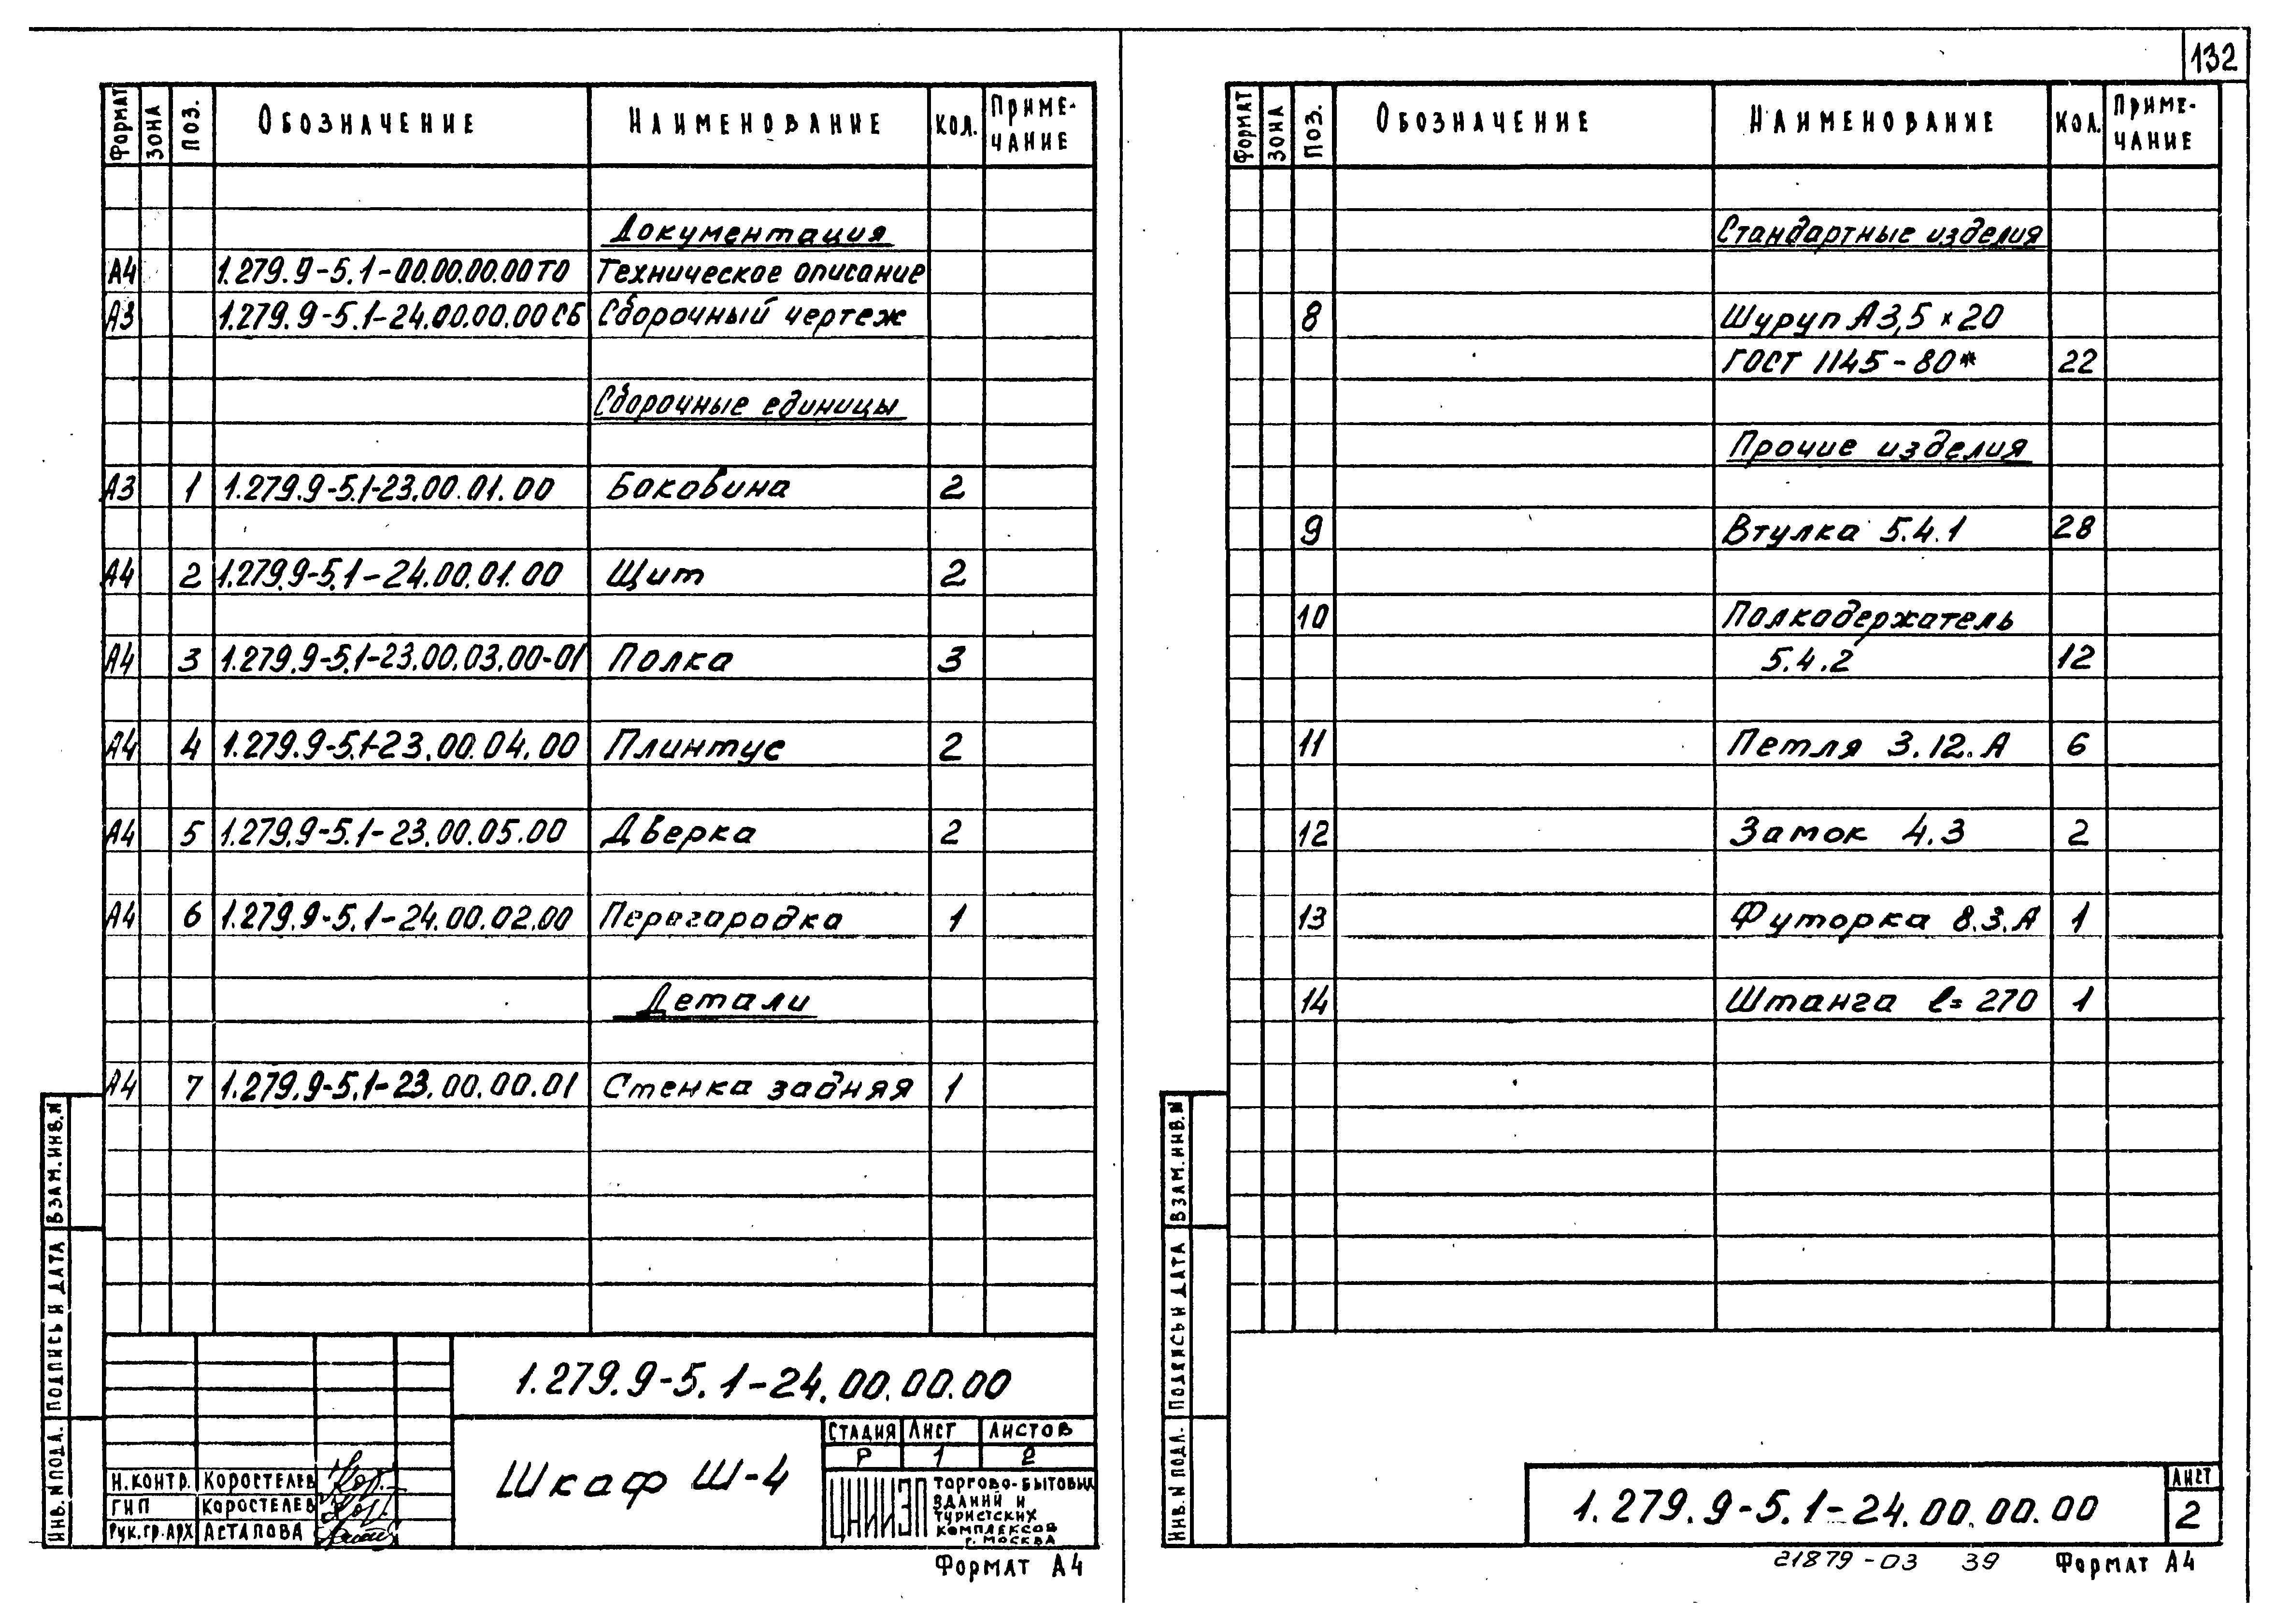 132
Формат Зона Поз. Обозначение Наименование Кол. Приме-
чание
Документация
А4 1.279.9-5.1-00.00.00.00ТО Техническое описание
А3 1.279.9-5.1-24.00.00.00СБ Сборочный чертеж
Сборочные единицы
А3 1 1.279.9-5.1-23.00.01.00 Боковина 2
А4 2 1.279.9-5.1-24.00.01.00 Щит 2
А4 3 1.279.9-5.1-23.00.03.00-01 Полка 3
А4 4 1.279.9-5.1-23.00.04.00 Плинтус 2
А4 5 1.279.9-5.1-23.00.05.00 Дверка 2
А4 6 1.279.9-5.1-24.00.02.00 Перегородка 1
Детали
А4 7 1.279.9-5.1-23.00.00.01 Стенка задняя 1
Взам.инв.N
Подпись и дата
Инв.N подл.
1.279.9-5.1-24.00.00.00
Шкаф Ш-4
Стадия Лист Листов
Р 1 2
Н.контр. Коростелев
ГИП Коростелев
Рук.гр.арх Астапова
ЦНИИЭП
торгово-бытовых
зданий и
туристских
комплексов
г. Москва
Формат А4
Формат Зона Поз. Обозначение Наименование Кол. Приме-
чание
Стандартные изделия
8 Шуруп А3,5×20
ГОСТ 1145-80* 22
Прочие изделия
9 Втулка 5.4.1 28
10 Полкодержатель
5.4.2 12
11 Петля 3.12.А 6
12 Замок 4.3 2
13 Футорка 8.3.А 1
14 Штанга ℓ=270 1
Взам.инв.N
Подпись и дата
Инв.N подл.
1.279.9-5.1-24.00.00.00
Лист
2
21879-03 39 Формат А4